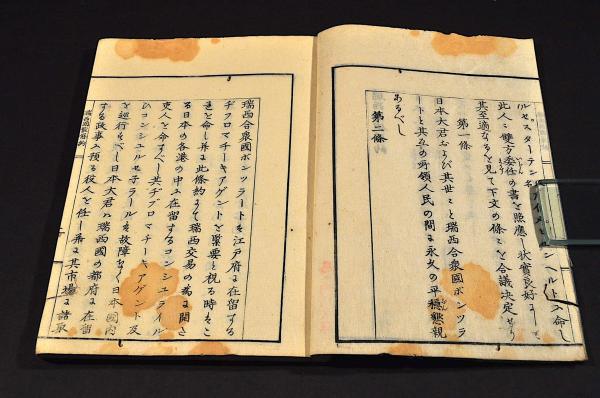 ルセスターテン名アイメ ンヘルト 命し
此人々雙方委任の書を照應し狀實良好に
其至適なるを見て下文の條々を合議決定せり
第一條
日本大君および其世々と瑞西合衆國ボンツラ
ートと其 の所領人民の間に永久の平穏懇親
あるべし
第二條
瑞西合衆國ボンツラートを江戸府に在留する
ヂフロマチーキアゲントを緊要と視る時はこ
を命し并に此條約にて瑞西交易の為に開き
る日本の各港の中に在留するコンシュライル
吏人を命すべし其ヂプロマチーキアゲント及
ひコンシュルゼ子ラールを故障なく日本國内
を巡行すべし日本大君は瑞西國の都府に在留
する政事に預る役人を任し并に其市場に諸取